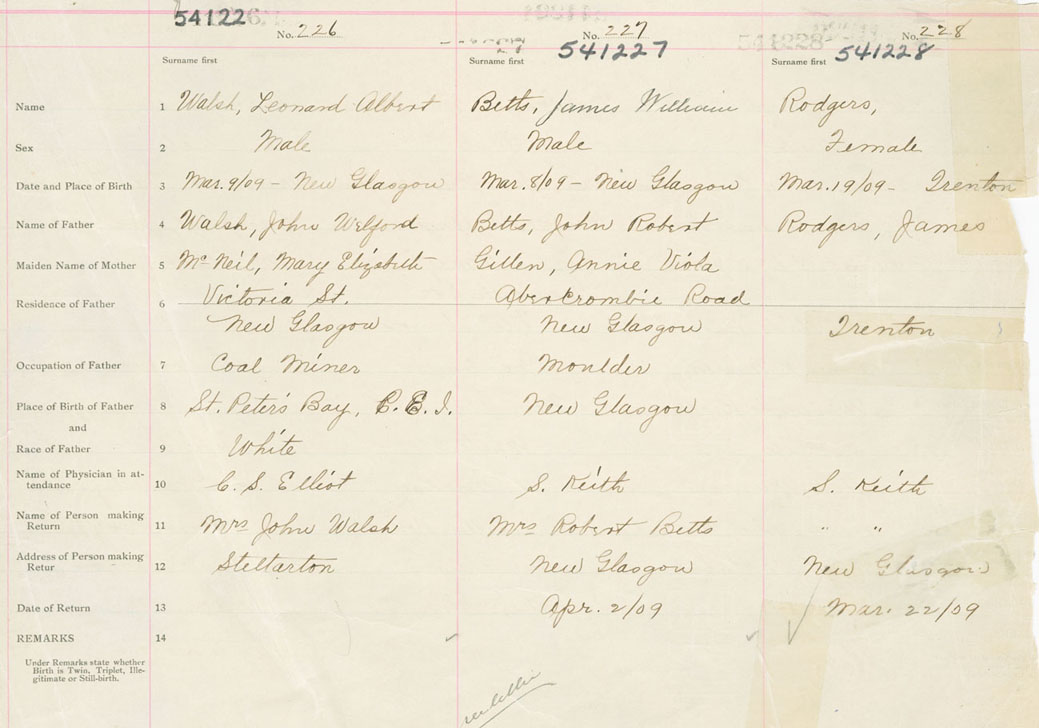 541226 541227 541228
No. 226 No. 227 No. 228
Surname first Surname first Surname first
Name 1 Walsh, Leonard Albert Betts, James William Rodgers,
Sex 2 Male Male Female
Date and Place of Birth 3 Mar. 9/09 - New Glasgow Mar. 8/09 - New Glasgow Mar. 19/09 - Trenton
Name of Father 4 Walsh, John Welford Betts, John Robert Rodgers, James
Maiden Name of Mother 5 McNeil, Mary Elizabeth Gillen, Annie Viola
Residence of Father 6 Victoria St. Abercrombie Road
New Glasgow New Glasgow Trenton
Occupation of Father 7 Coal Miner Moulder
Place of Birth of Father 8 St. Peter's Bay, P.E.I. New Glasgow
and
Race of Father 9 White
Name of Physician in at-
tendance 10 C. S. Elliot S. Keith S. Keith
Name of Person making
Return 11 Mrs John Walsh Mrs Robert Betts " "
Address of Person making
Retur 12 Stellarton New Glasgow New Glasgow
Date of Return 13 Apr. 2/09 Mar. 22/09
REMARKS 14
Under Remarks state whether
Birth is Twin, Triplet, Ille-
gitimate or Still-birth.